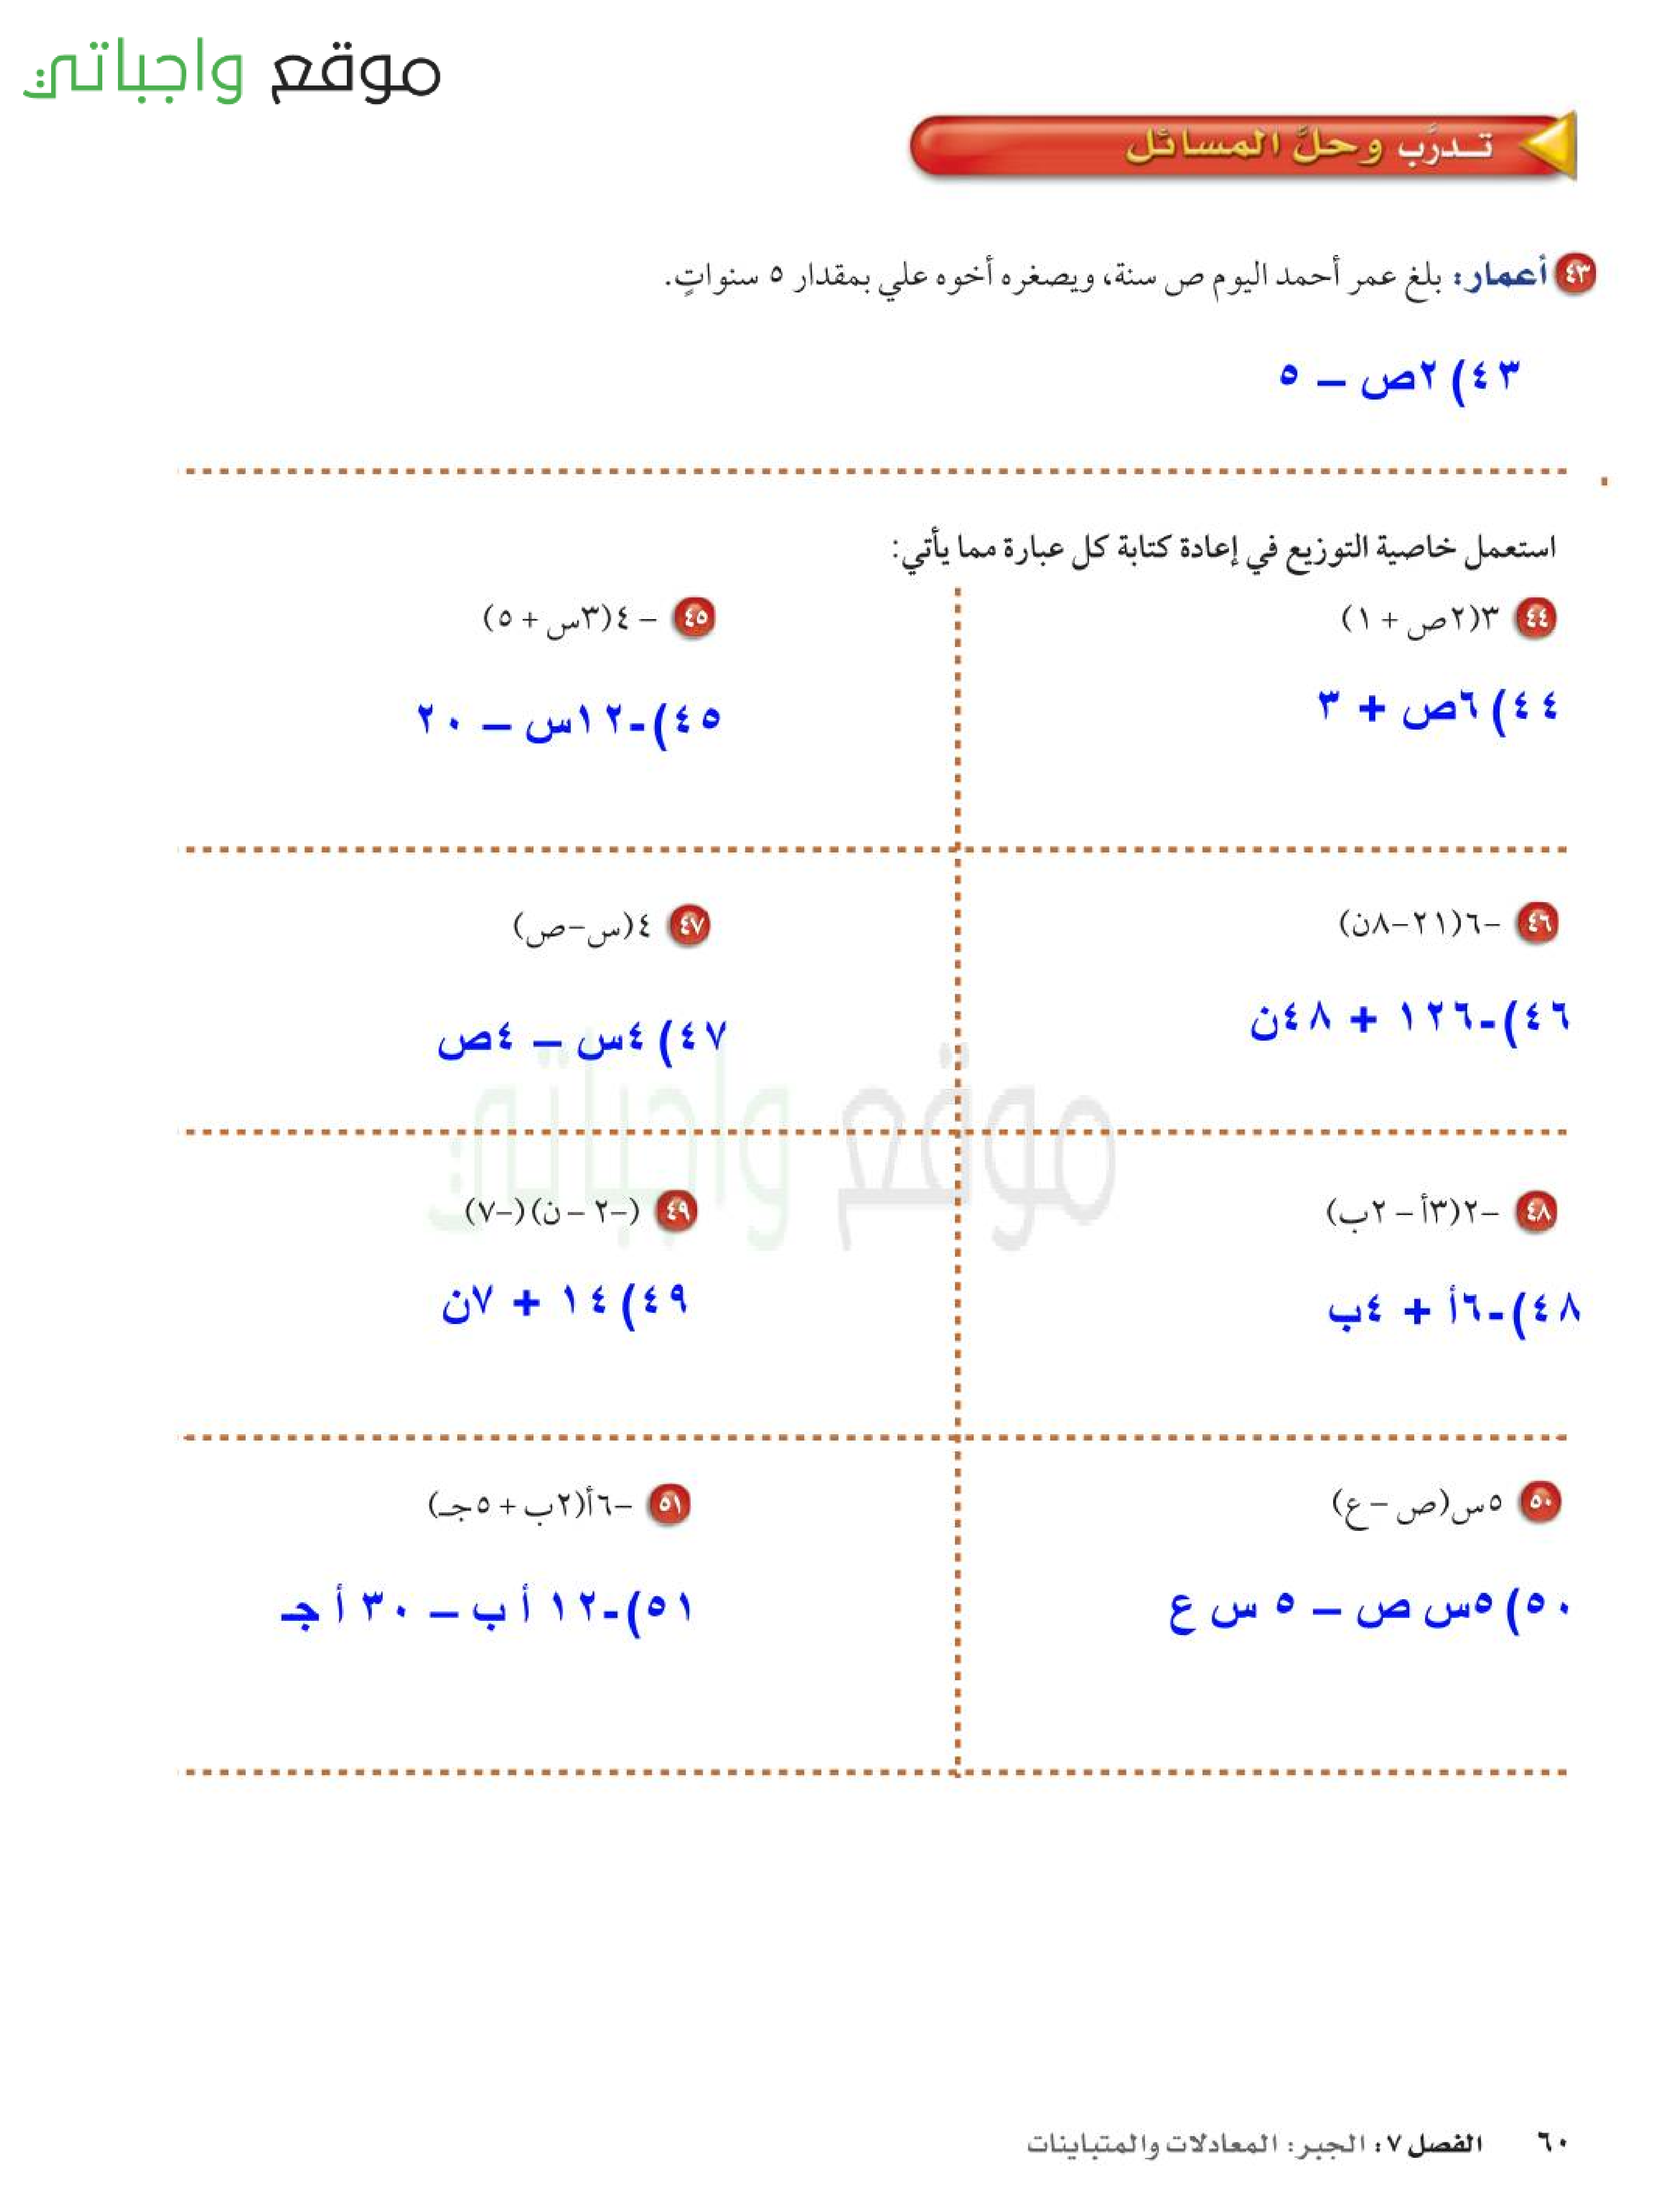 موقع واجباتي
تـدرَّب وحلَّ المسائل
٤٣ أعمار: بلغ عمر أحمد اليوم ص سنة، ويصغره أخوه علي بمقدار ٥ سنواتٍ.
٤٣) ٢ص – ٥
استعمل خاصية التوزيع في إعادة كتابة كل عبارة مما يأتي:
٤٤ ٣(٢ص + ١)
٤٥ – ٤(٣س + ٥)
٤٤) ٦ص + ٣
٤٥)-١٢س – ٢٠
٤٦ –٦(٢١–٨ن)
٤٧ ٤(س–ص)
٤٦)-١٢٦ + ٤٨ن
٤٧) ٤س – ٤ص
٤٨ –٢(٣أ – ٢ب)
٤٩ (–٢ – ن)(–٧)
٤٨)-٦أ + ٤ب
٤٩) ١٤ + ٧ن
٥٠ ٥س(ص – ع)
٥١ –٦أ(٢ب + ٥جـ)
٥٠) ٥س ص – ٥ س ع
٥١)-١٢ أ ب – ٣٠ أ جـ
موقع واجباتي
٦٠ الفصل ٧: الجبر: المعادلات والمتباينات